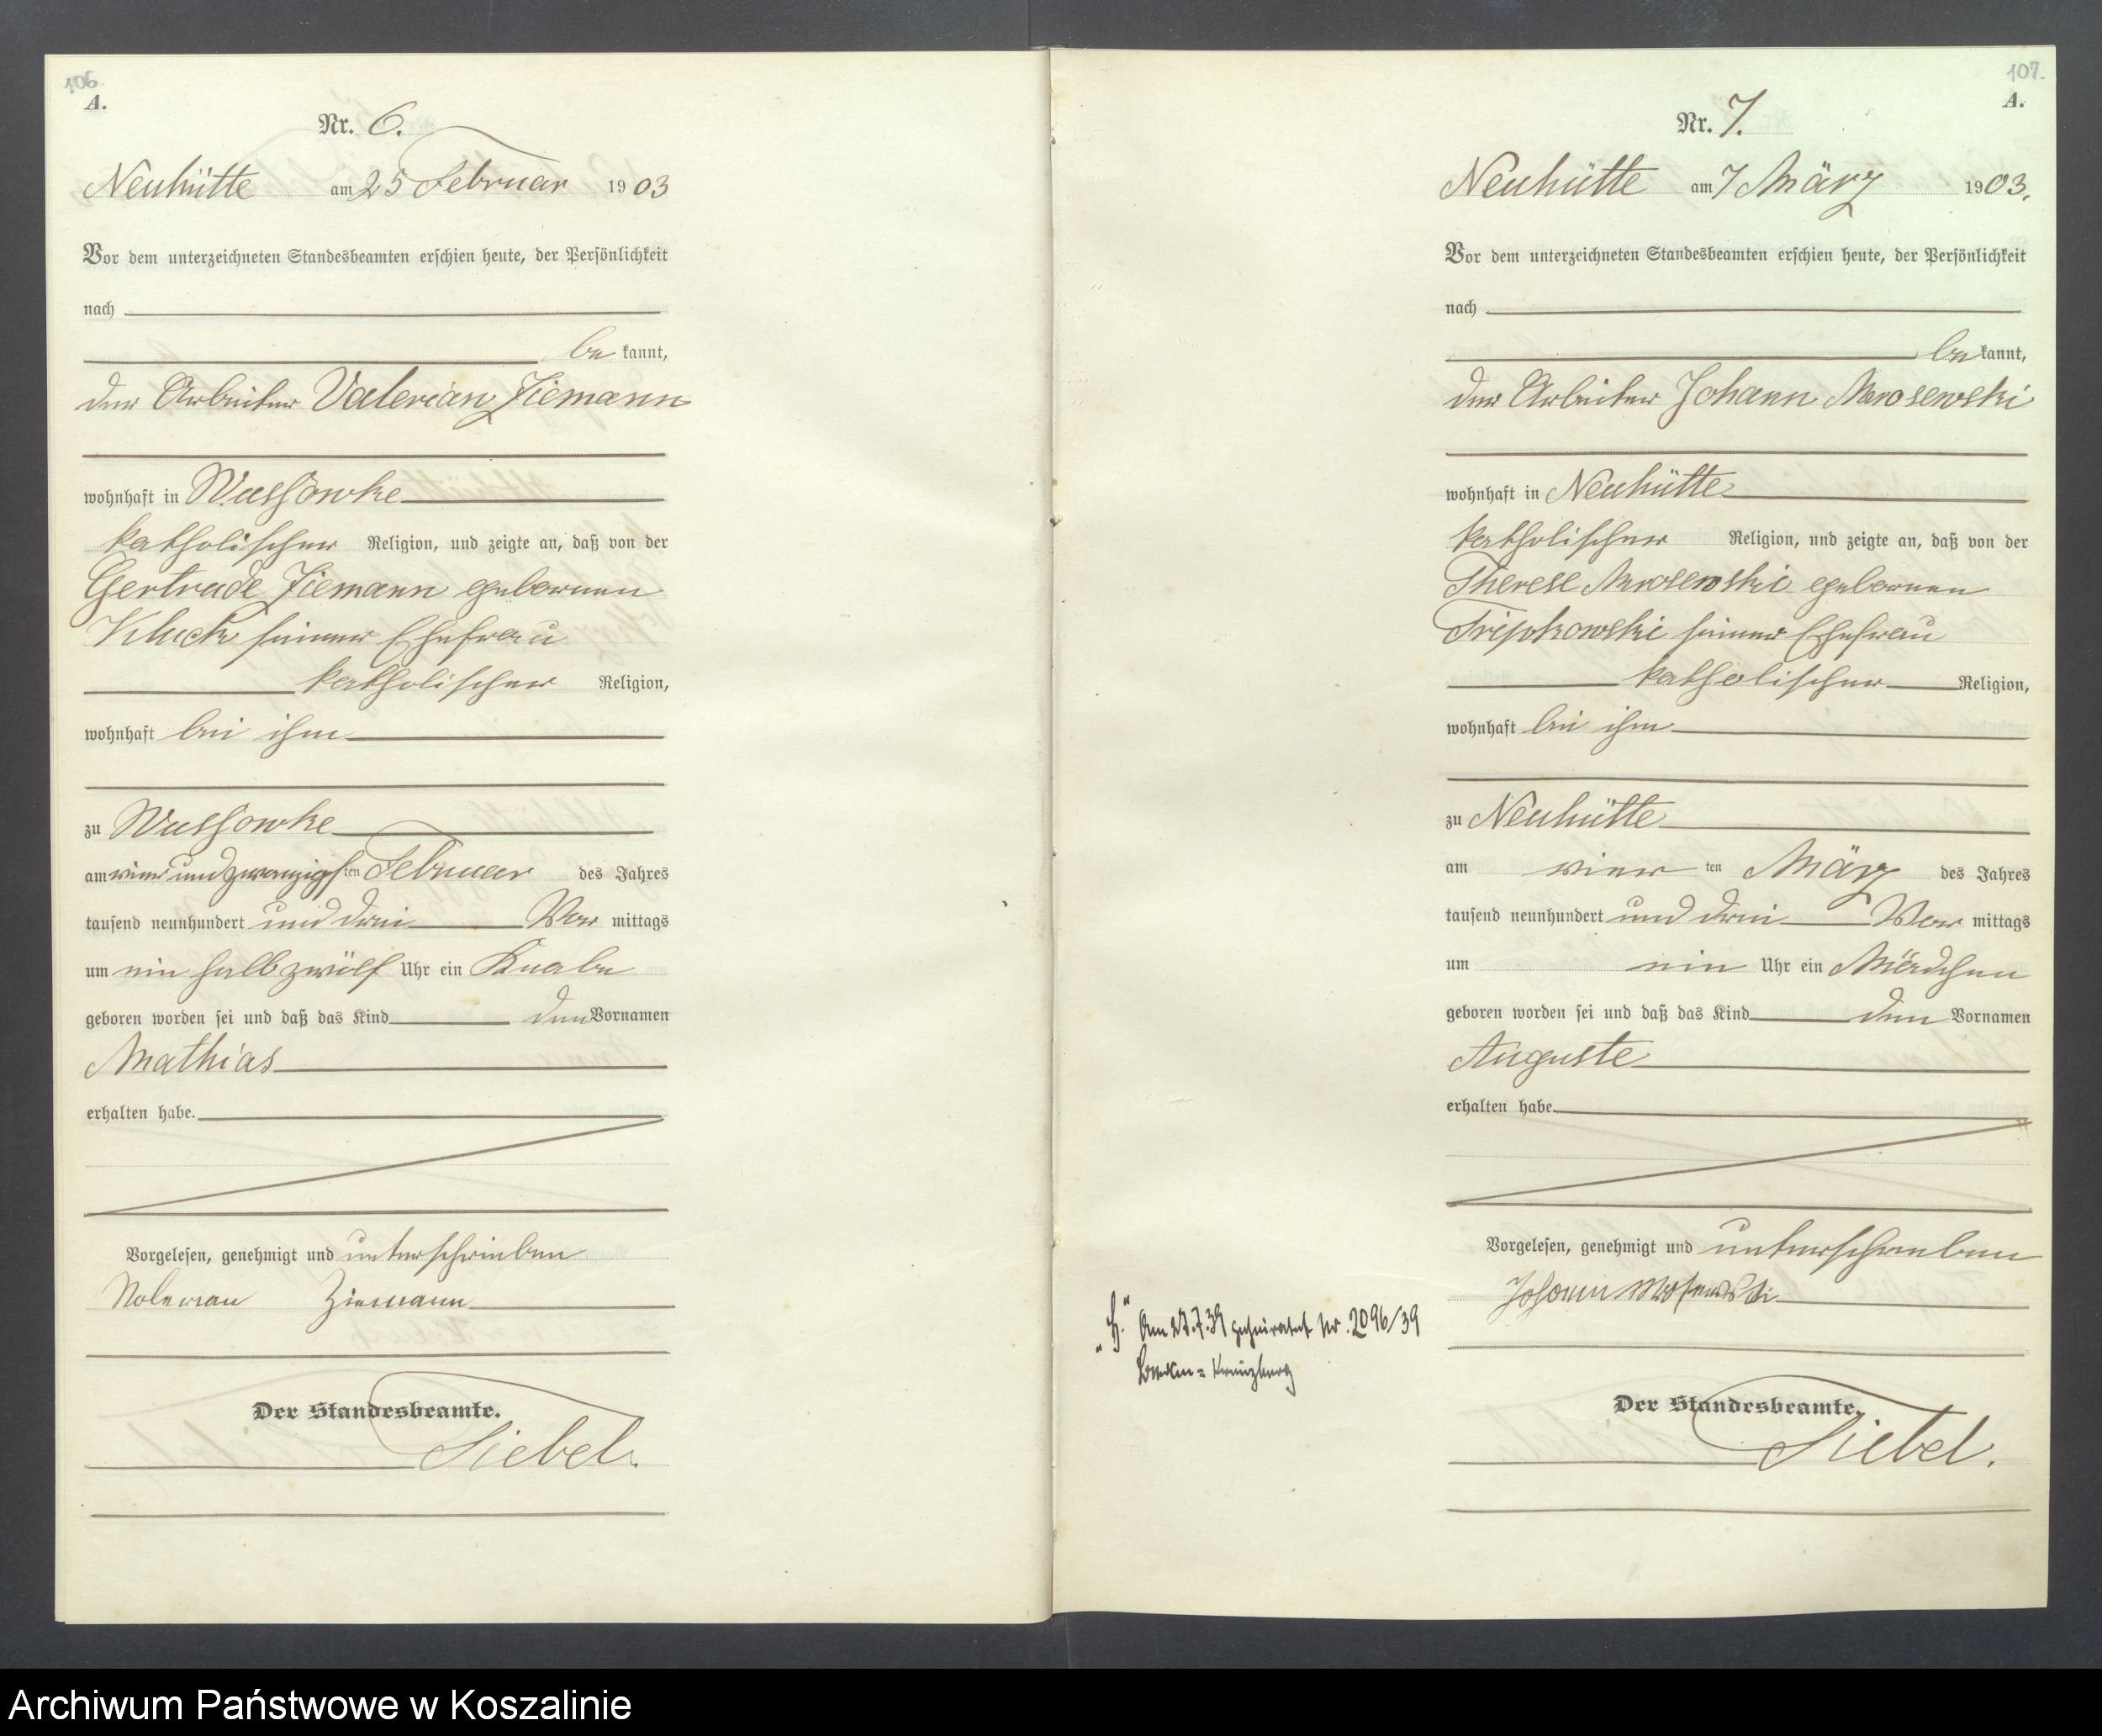 106
A.
Nr. 6.
Neuhütte am 25 Februar 1903
Vor dem unterzeichneten Standesbeamten erschien heute, der Persönlichkeit
nach
be kannt,
der Arbeiter Valerian Ziemann
wohnhaft in Wussowke
katholischer Religion, und zeigte an, daß von der
Gertrude Ziemann geborenen
Kluck seiner Ehefrau
katholischer Religion,
wohnhaft bei ihm
zu Wussowke
am vier und zwanzigsten Februar des Jahres
tausend neunhundert und drei Vor mittags
um ein halb zwölf Uhr ein Knabe
geboren worden sei und daß das Kind den Vornamen
Mathias
erhalten habe.
Vorgelesen, genehmigt und unterschrieben
Valerian Ziemann
Der Standesbeamte.
Siebel.
107.
A.
Nr. 7.
Neuhütte am 7 März 1903.
Vor dem unterzeichneten Standesbeamten erschien heute, der Persönlichkeit
nach
be kannt,
der Arbeiter Johann Mrosewski
wohnhaft in Neuhütte
katholischer Religion, und zeigte an, daß von der
Therese Mrosewski geborenen
seiner Ehefrau
katholischer Religion,
wohnhaft bei ihm
zu Neuhütte
am vier ten März des Jahres
tausend neunhundert und drei Vor mittags
um ein Uhr ein Mädchen
geboren worden sei und daß das Kind den Vornamen
Auguste
erhalten habe.
Vorgelesen, genehmigt und unterschrieben
Johann Mrosewski
"H." Am 27.7.39 geheiratet Nr. 2096/39
Berlin=Kreuzberg
Der Standesbeamte.
Siebel.
Archiwum Państwowe w Koszalinie